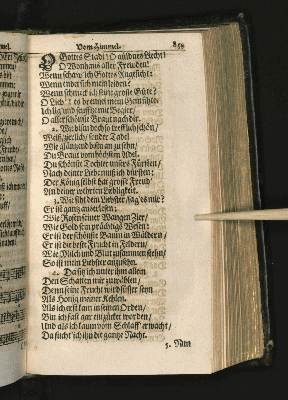 Vom Himmel. 859
O Gottes Stadt! O güldnes Liecht!
O Wonhaus aller Freuden!
Wenn schaw' ich Gottes Angesicht?
Wenn endet sich mein leiden?
Wenn schmeck' ich seine grosse Güte?
O Lieb'! es brennet mein Gemühte/
Ich lig und seuftz mit Begier/
O allerschönste Braut nach dir.
2. Wie bistu doch so trefflich schön/
Weiß/zierlich/sonder Tadel
Wie gläntzend bistu an zusehn/
Du Braut vom höchsten Adel.
Du schönste Tochter unsers Fürsten/
Nach deiner Liebe muß ich dürsten:
Der König selbst hat grosse Freud'
An deiner wehrten Liebligkeit.
3. Wie siht dein Liebster sag' es mir?
Er ist gantz auserlesen:
Wie Rosen seiner Wangen Zier/
Wie Gold sein prächtigs Wesen:
Er ist der schönste Baum in Wäldern/
Er ist die beste Frucht in Feldern/
Wie Milch und Blut zusammen stehn/
So ist mein Liebster anzusehn.
4. Da sitz ich unter ihm allein
Den Schatten mir zu wählen/
Denn seine Frucht wird süsser seyn
Als Honig meiner Kehlen.
Als ich erst kam in seinen Orden/
Bin ich fast gar entzücket worden/
Und als ich kaum vom Schlaff erwacht/
Da sucht' ich ihn die gantze Nacht.
5. Nun